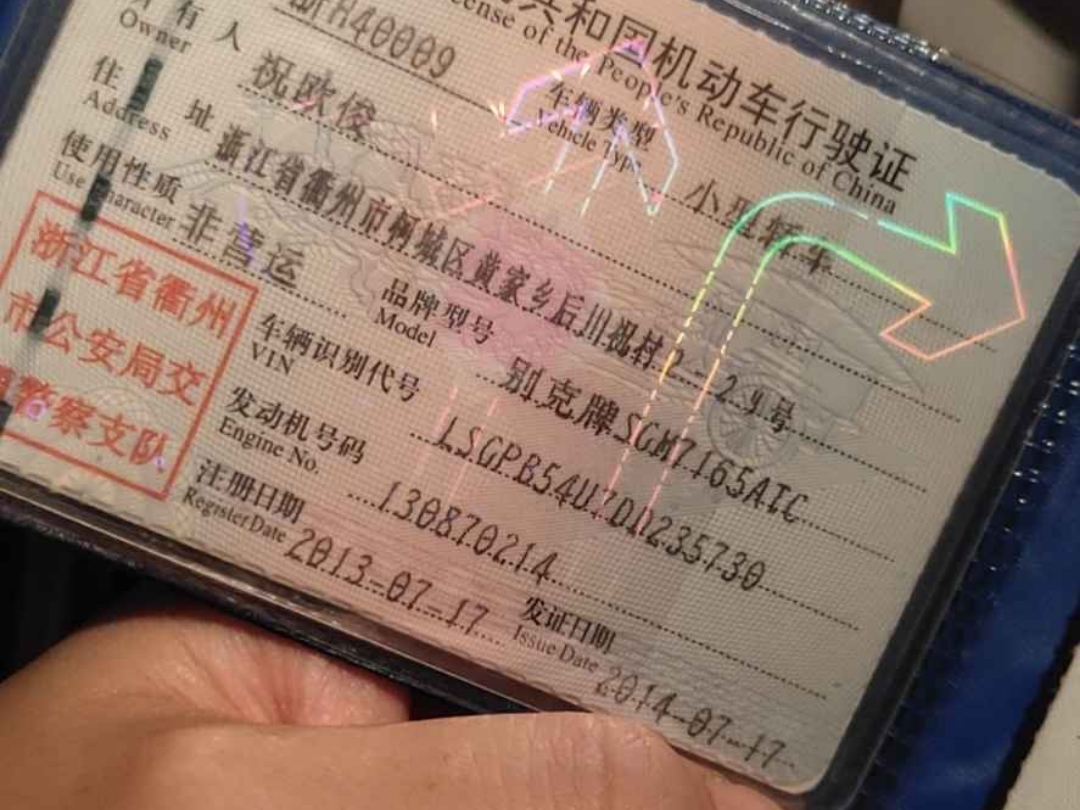 共和国机动车行驶证
cense of the People's Republic of China
浙H40009
车辆类型 小型轿车
Vehicle Type
所有人 祝欧俊
Owner
住址 浙江省衢州市柯城区黄家乡后川祝村2-29号
Address
使用性质 非营运
Use Character
品牌型号 别克牌SGM7165ATC
Model
车辆识别代号 LSGPB54U7DD235730
VIN
发动机号码 130870214
Engine No.
注册日期 2013-07-17
Register Date
发证日期 2014-07-17
Issue Date
浙江省衢州
市公安局交
警察支队